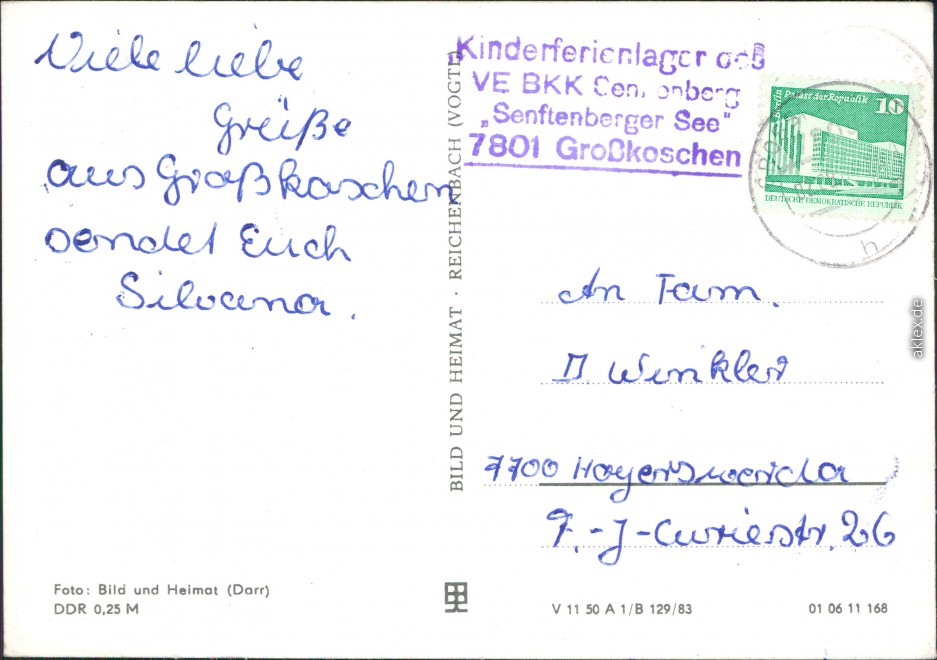 Viele liebe
Grüße
aus Großkoschen
sendet Euch
Silvana.
Foto: Bild und Heimat (Darr)
DDR 0,25 M
BILD UND HEIMAT · REICHENBACH (VOGTL)
Kinderferienlager des
VE BKK Senftenberg
„Senftenberger See"
7801 Großkoschen
Berlin Palast der Republik
10
DEUTSCHE DEMOKRATISCHE REPUBLIK
h
An Fam.
Winkler
7700 Hoyerswerda
F.-J-Curiestr. 26
V 11 50 A 1/B 129/83
01 06 11 168
aklex.de